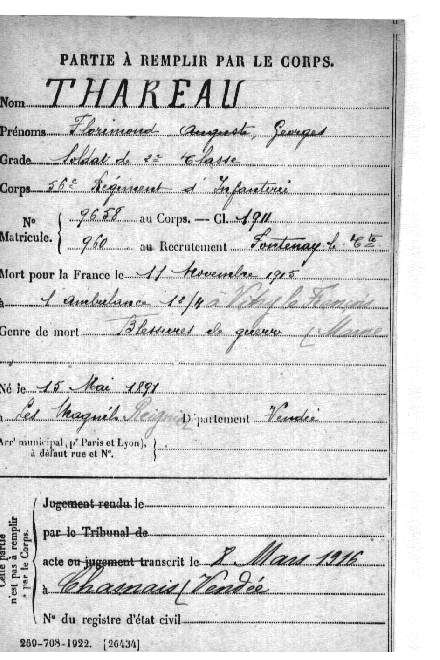 PARTIE À REMPLIR PAR LE CORPS.
Nom THAREAU
Prénoms Florimond Auguste, Georges
Grade Soldat de 2e Classe
Corps 56e Régiment d'Infanterie
N° Matricule. { 9658 au Corps. — Cl. 1911
960 au Recrutement Fontenay le Cte
Mort pour la France le 11 Novembre 1915
à l'ambulance 1°/4 à Vitry le Français
Genre de mort Blessures de guerre (Marne
Né le 15 Mai 1891
à Les Magnils Reigniers Département Vendée
Arrt municipal (pr Paris et Lyon), à défaut rue et N°. {
Cette partie n'est pas à remplir par le Corps.
Jugement rendu le
par le Tribunal de
acte ou jugement transcrit le 8 Mars 1916
à (Vendée
N° du registre d'état civil
259-708-1922. [26434]